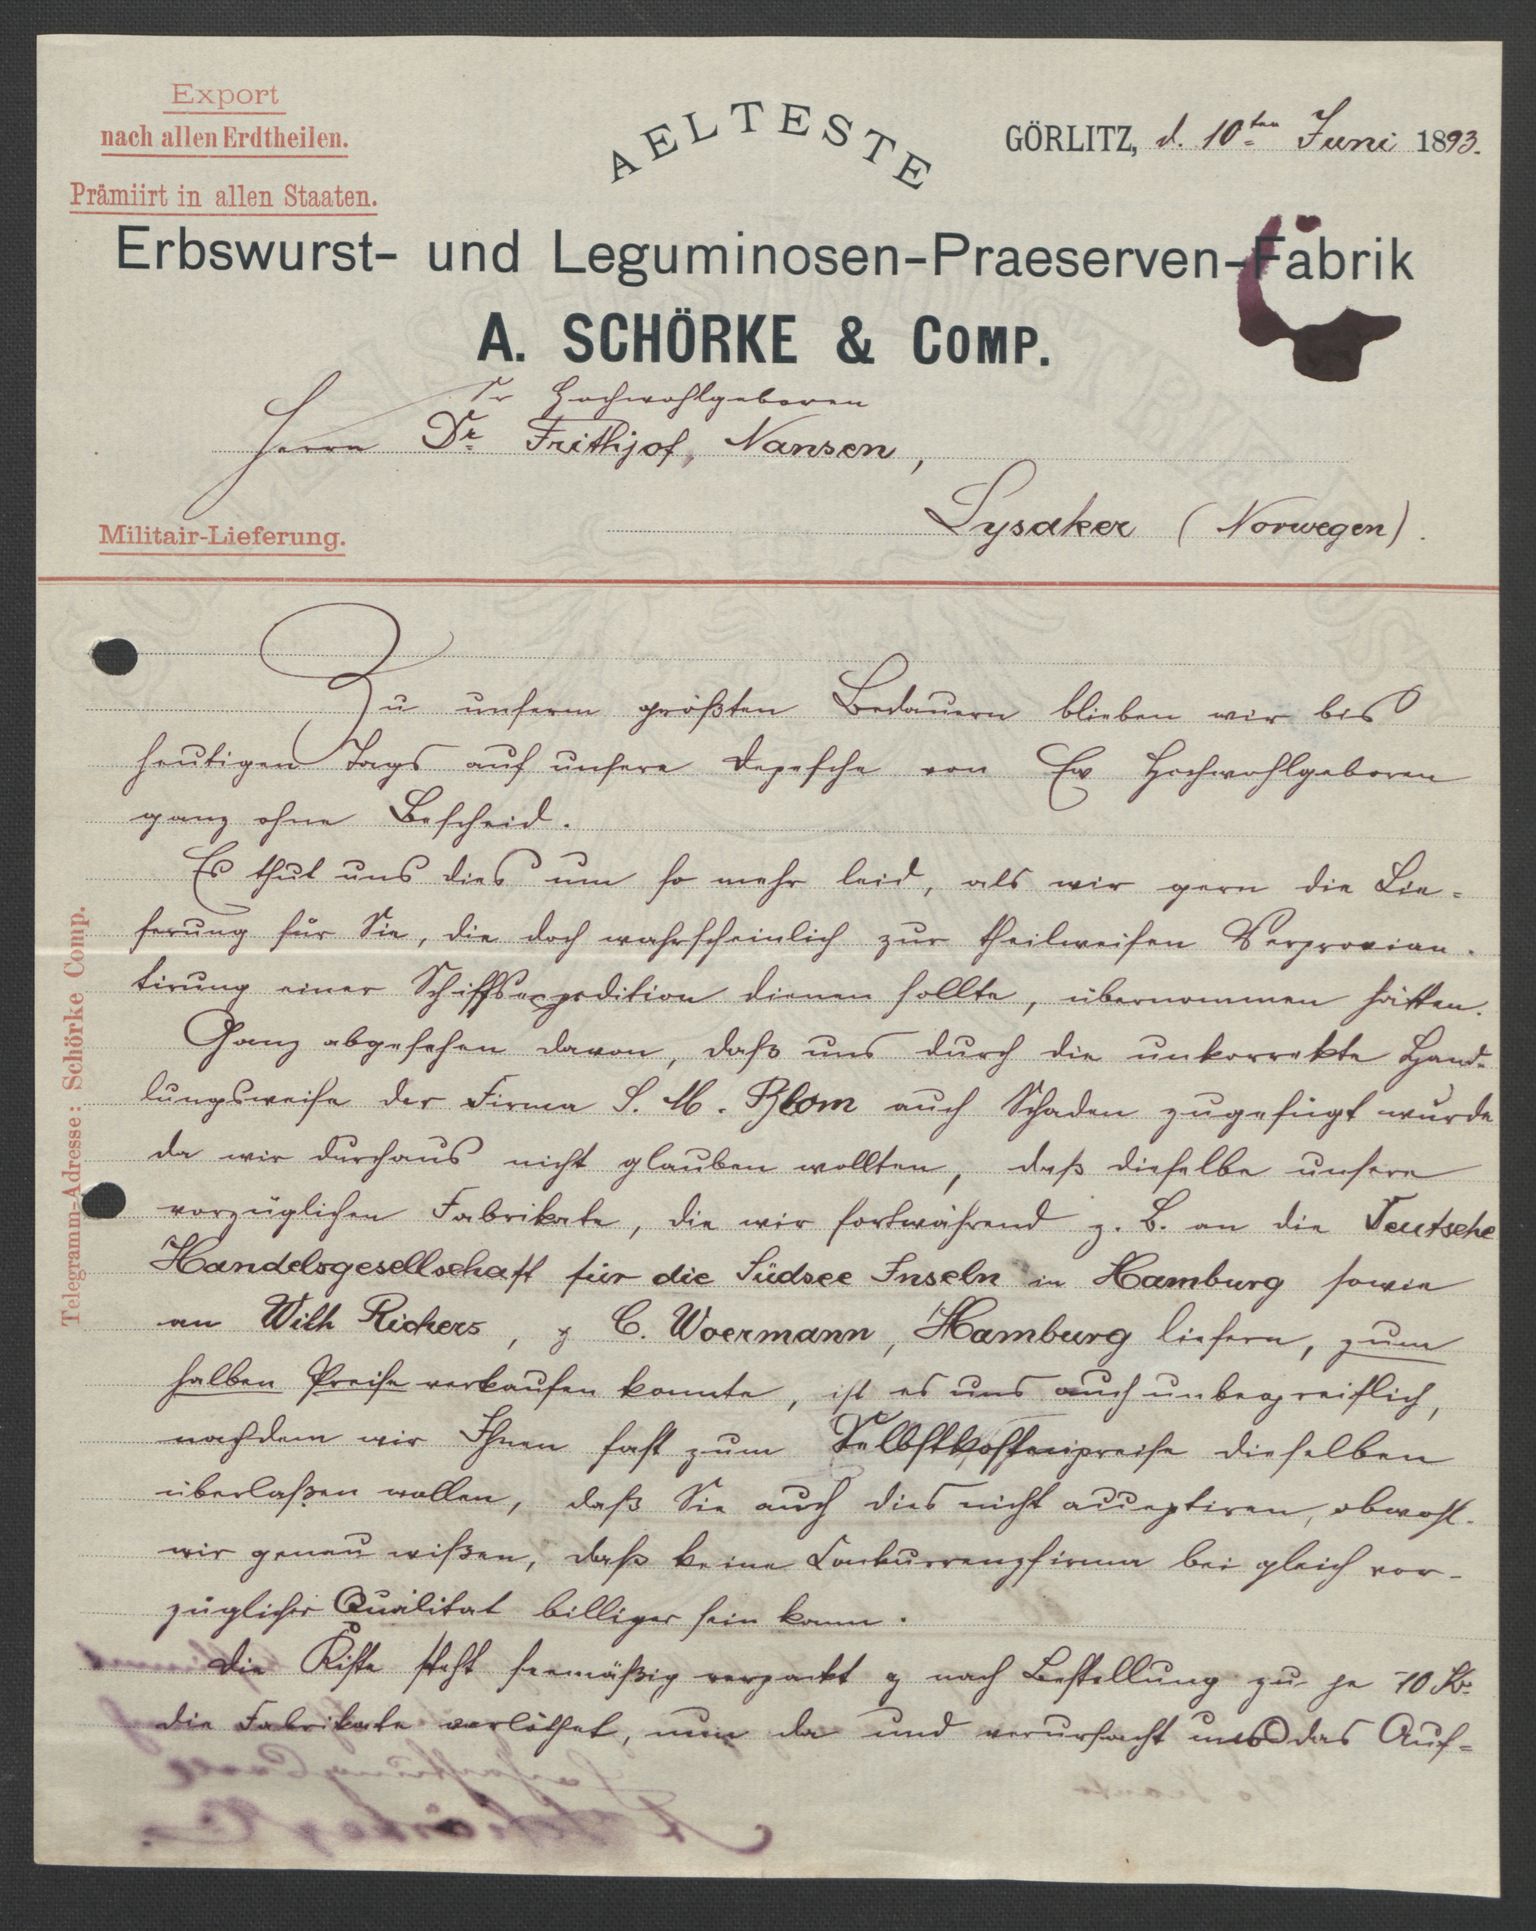 Export
nach allen Erdtheilen.
Prämiirt in allen Staaten.
AELTESTE
GÖRLITZ, d. 10ten Juni 1893.
Erbswurst- und Leguminosen-Praeserven-Fabrik
A. SCHÖRKE & COMP.
Sr Hochwohlgeboren
Herrn Dr Frithjof, Nansen,
Lysaker (Norwegen).
Militair-Lieferung.
Telegramm-Adresse: Schörke Comp.
Zu unserm größten Bedauern blieben wir bis
heutigen Tags auf unsere Depesche von Ew Hochwohlgeboren
ganz ohne Bescheid.
Es thut uns dies um so mehr leid, als wir gern die Lie-
ferung für Sie, die doch wahrscheinlich zur theilweisen Verprovian-
tirung einer Schiffsexpedition dienen sollte, übernommen hätten.
Ganz abgesehen davon, daß uns durch die unkorrekte Hand-
lungsweise der Firma S. M. Blom auch Schaden zugefügt wurde
da wir durchaus nicht glauben wollten, daß dieselbe unsere
vorzüglichen Fabrikate, die wir fortwährend z. B. an die Deutsche
Handelsgesellschaft für die Südsee Inseln in Hamburg sowie
an Wilh Richers, & C. Woermann, Hamburg liefern, zum
halben Preise verkaufen konnte, ist es uns auch unbegreiflich,
nachdem wir Ihnen fast zum Selbstkostenpreise dieselben
überlaßen wollen, daß Sie auch dies nicht acceptiren, obwohl
wir genau wißen, daß keine Conkurrenzfirma bei gleich vor-
züglicher Qualitat billiger sein kann.
Die Kiste steht seemäßig verpackt & nach Bestellung zu je 10 Ko
die Fabrikate verlöthet, nun da und verursacht uns das Auf-